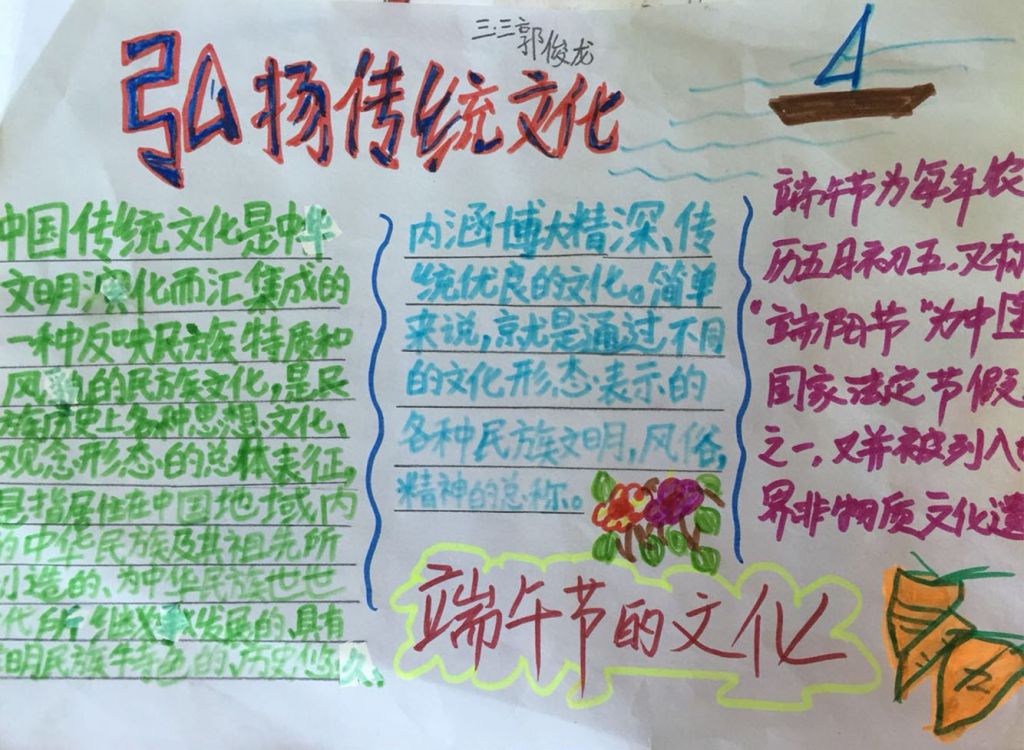 三.三郭俊龙
弘扬传统文化
中国传统文化是中华
文明演化而汇集成的
一种反映民族特质和
风貌的民族文化,是民
族历史上各种思想文化、
观念形态的总体表征,
是指居住在中国地域内
的中华民族及其祖先所
创造的、为中华民族世世
代所继发展的,具有
明民族特色的、历史悠久、
内涵博大精深、传
统优良的文化。简单
来说,就是通过不同
的文化形态表示的
各种民族文明,风俗,
精神的总称。
端午节为每年农
历五月初五,又称
“端阳节”为中国
国家法定节假
之一,又并被列入
界非物质文化遗
端午节的文化